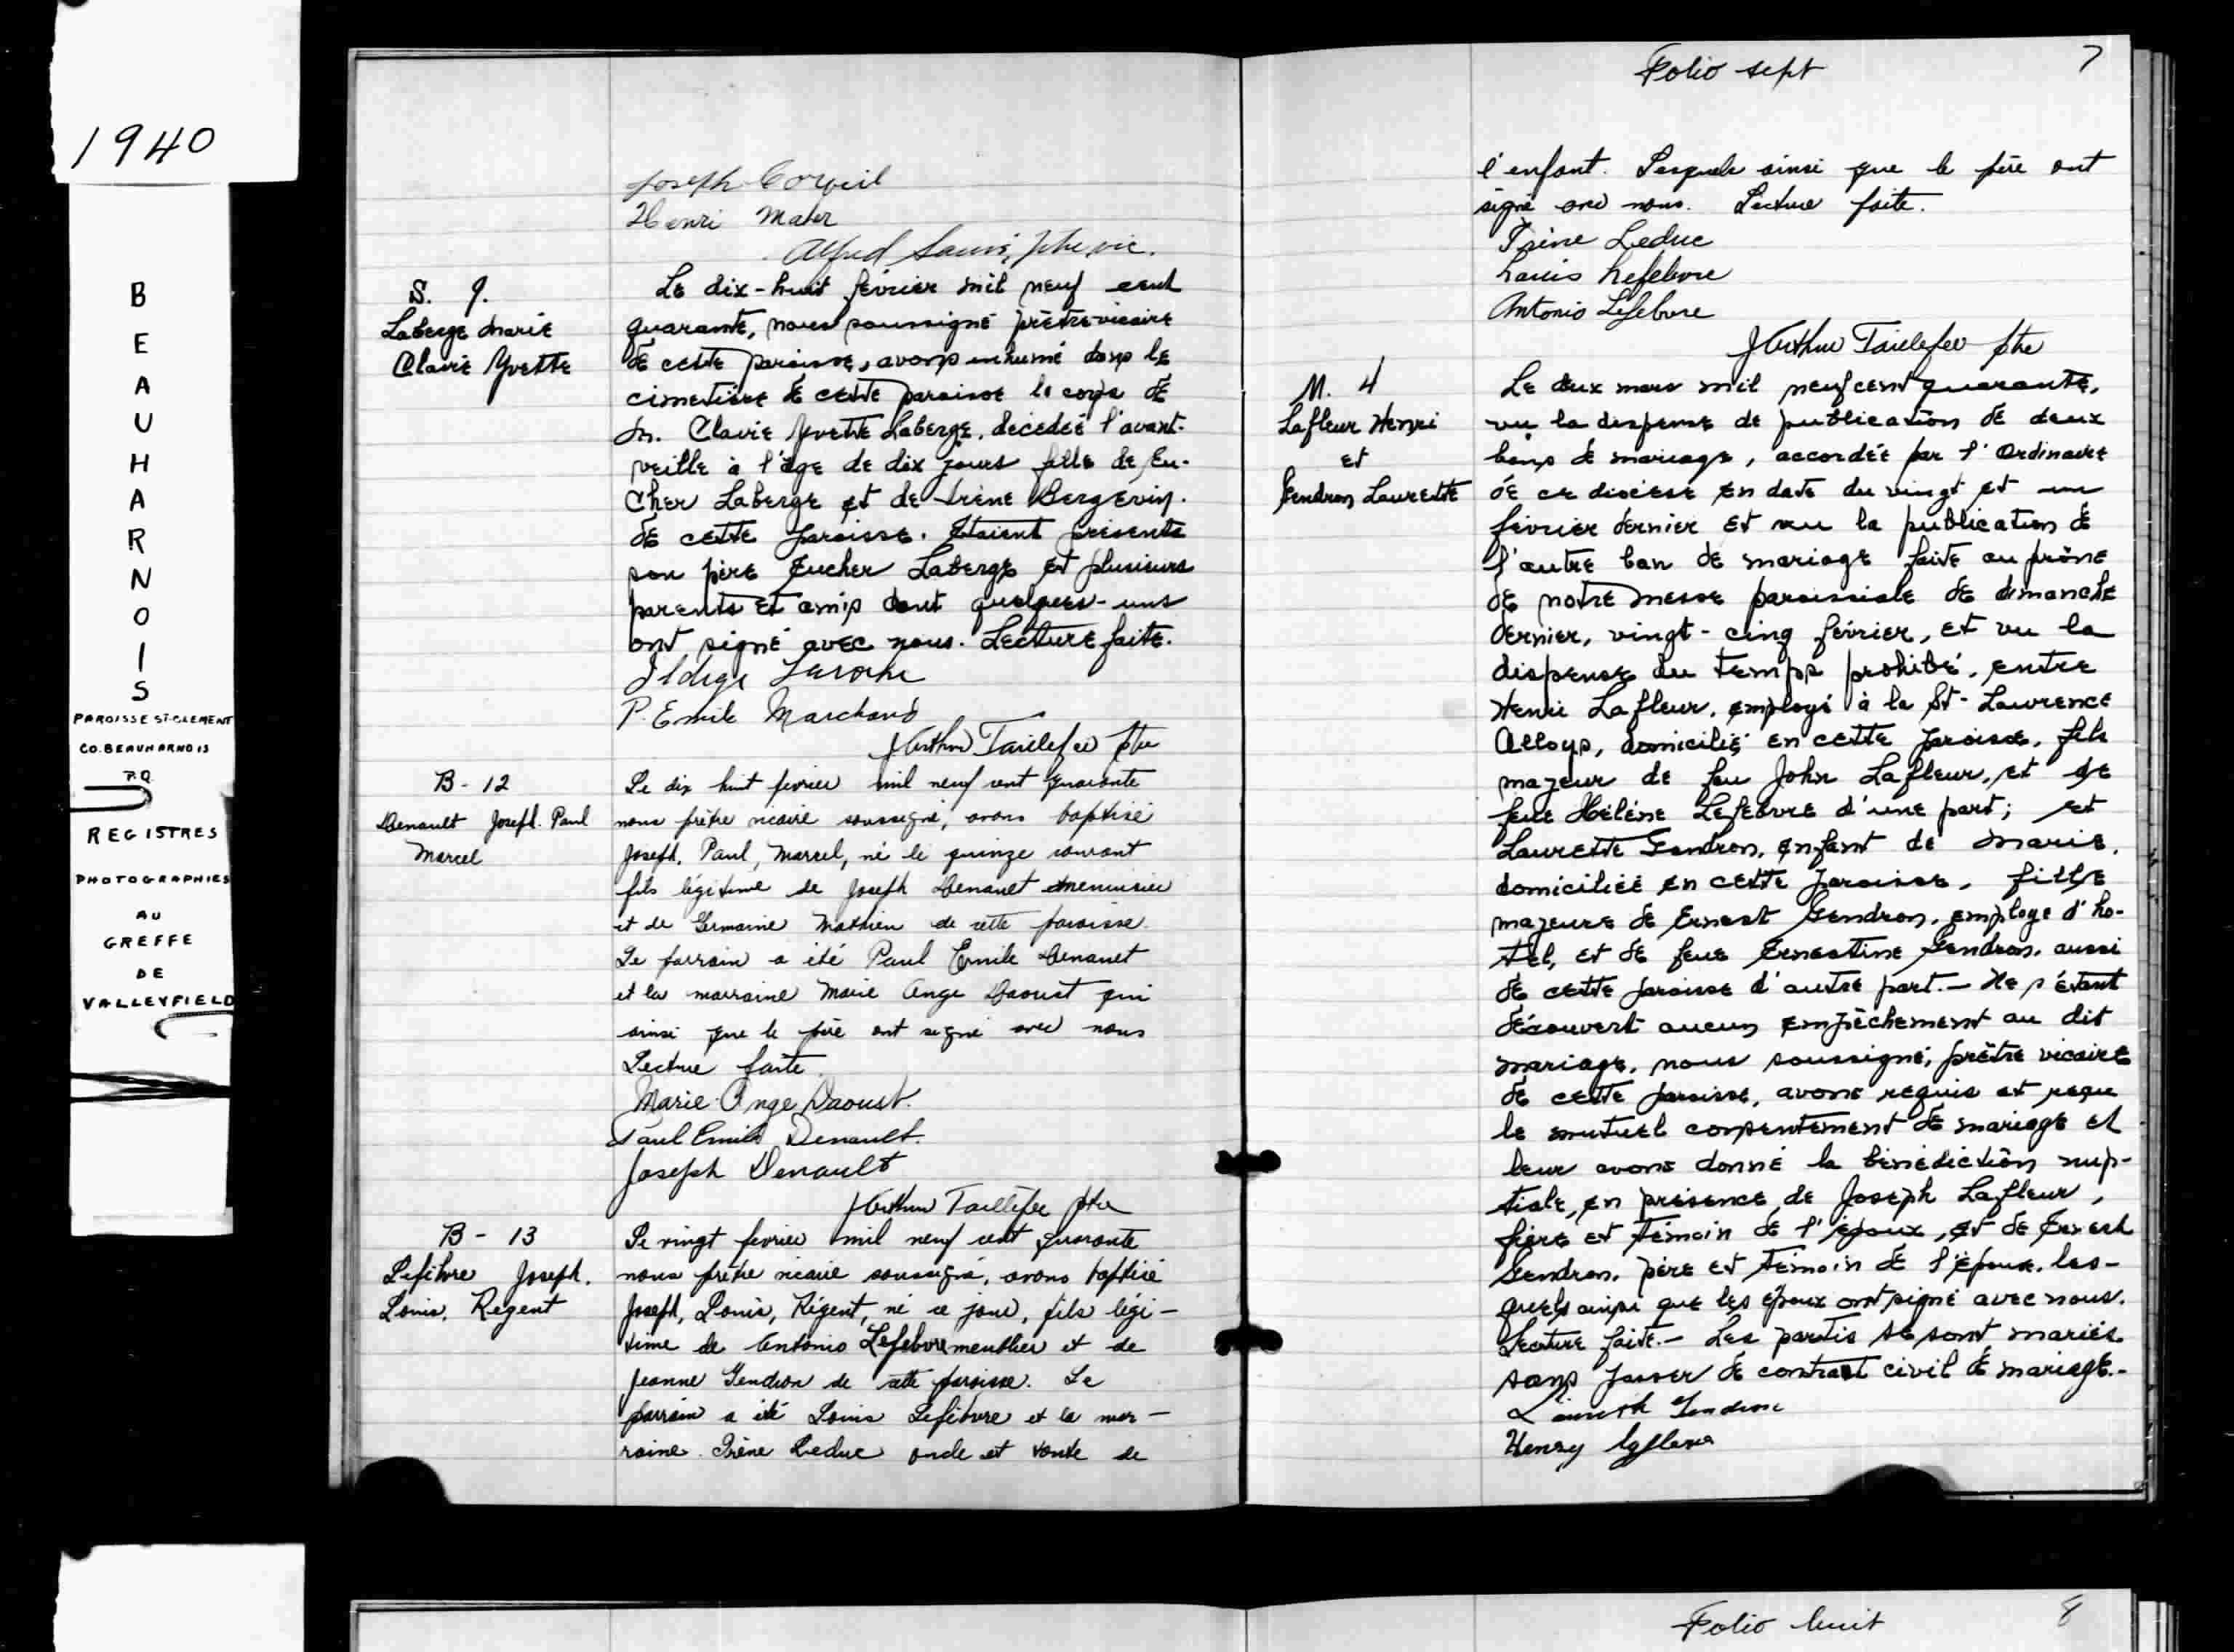 1940
BEAUHARNOIS
PAROISSE ST-CLEMENT
CO. BEAUHARNOIS
P.Q
REGISTRES
PHOTOGRAPHIES
AU
GREFFE
DE
VALLEYFIELD
Joseph
Henri
Alfred ptre vic.
S. 9.
Laberge Marie
Clavie Yvette
Le dix-huit février mil neuf cent
quarante, nous soussigné prêtre vicaire
de cette paroisse, avons inhumé dans le
cimetière de cette paroisse le corps de
M. Clavie Yvette Laberge, décédée l'avant-
veille à l'âge de dix jours fille de Eu-
cher Laberge et de Irène Bergevin.
de cette paroisse. Etaient présents
son père Eucher Laberge et plusieurs
parents et amis dont quelques-uns
ont signé avec nous. Lecture faite.
P. Emile Marchand
J Arthur Taillefer ptre
B - 12
Denault Joseph. Paul
Marcel
Le dix huit fevrier mil neuf cent quarante
nous prêtre vicaire soussigné, avons baptisé
Joseph, Paul, Marcel, né le quinze courant
fils légitime de Joseph Denault menuisier
et de Germaine Mathieu de cette paroisse
Le parrain a été Paul Emile Denault
et la marraine Marie Ange Daoust qui
ainsi que le père ont signé avec nous
Lecture faite.
Marie-Ange Daoust.
Paul Emile Denault.
Joseph Denault
J Arthur Taillefer ptre
B - 13
Lefebvre Joseph.
Louis. Regent
Le vingt fevrier mil neuf cent quarante
nous prêtre vicaire soussigné, avons baptisé
Joseph, Louis, Régent, né ce jour, fils légi-
time de Antonio Lefebvre meublier et de
Jeanne Gendron de cette paroisse. Le
parrain a été Louis Lefebvre et la mar-
raine Irène Leduc oncle et tante de
Folio sept
7
l'enfant. Lesquels ainsi que le père ont
signé avec nous. Lecture faite.
Irène Leduc
Louis Lefebvre
Antonio Lefebvre
J Arthur Taillefer ptre
M. 4
Lafleur Henri
et
Gendron Laurette
Le deux mars mil neuf cent quarante,
vu la dispense de publication de deux
bans de mariage, accordée par l'Ordinaire
de ce diocèse en date du vingt et un
février dernier et vu la publication de
l'autre ban de mariage faite au prône
de notre messe paroissiale de dimanche
dernier, vingt-cinq février, et vu la
dispense du temps prohibé, entre
Henri Lafleur, employé à la St-Laurence
Alloys, domicilié en cette paroisse, fils
majeur de feu John Lafleur, et de
feue Hélène Lefebvre d'une part; et
Laurette Gendron, enfant de Marie,
domiciliée en cette paroisse, fille
majeure de Ernest Gendron, employé d'ho-
tel, et de feue Ernestine Gendron, aussi
de cette paroisse d'autre part.- Ne s'étant
découvert aucun empêchement au dit
mariage, nous soussigné, prêtre vicaire
de cette paroisse, avons requis et reçu
le mutuel consentement de mariage et
leur avons donné la bénédiction nup-
tiale, en présence de Joseph Lafleur,
frère et témoin de l'époux, et de Ernest
Gendron, père et témoin de l'épouse, les-
quels ainsi que les époux ont signé avec nous.
Lecture faite.- Les partis se sont mariés
sans passer de contrat civil de mariage.-
Gendron
Henry Lafleur
Folio huit
8